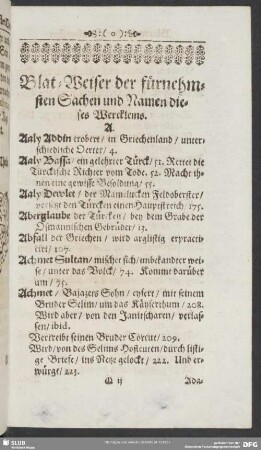 :( o ):
Blat-Weiser der fürnehm-
sten Sachen und Namen die-
ses Werckleins.
A.
Aaly Addin erobert / in Griechenland / unter-
schiedliche Oerter / 4.
Aaly Bassa / ein gelehrter Türck / 51. Rettet die
Türckische Richter vom Tode. 52. Macht ih-
nen eine gewisse Besoldung / 55.
Aaly Devlet / der Mamelucken Feldoberster /
versetzt den Türcken einen Hauptstreich. 175.
Aberglaube der Türcken / bey dem Grabe der
Osmannischen Gebrüder / 13.
Abfall der Griechen / wird arglistig erpracti-
cirt / 107.
Achmet Sultan / mischet sich / unbekandter wei-
se / unter das Volck / 74. Kommt darüber
um / 75.
Achmet / Bajazets Sohn / eyfert / mit seinem
Bruder Selim / um das Käyserthum / 208.
Wird aber / von den Janitscharen / verlas-
sen / ibid.
Vertreibt seinen Bruder Corcut / 209.
Wird / von des Selims Hofleuten / durch listi-
ge Briefe / ins Netze gelockt / 222. Und er-
würgt / 223.
Q ij Ada-
SLUB
DFG